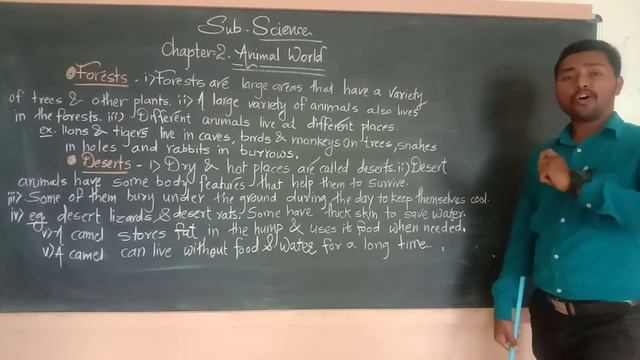 Sub - Science
Chapter:-2. Animal World
Forests - i) Forests are large areas that have a variety
of trees & other plants. ii) A large variety of animals also lives
in the forests. iii) Different animals live at different places.
ex. lions & tigers live in caves, birds & monkeys on trees, snakes
in holes and rabbits in burrows.
Deserts - i) Dry & hot places are called deserts. ii) Desert
animals have some body features that help them to survive.
iii) Some of them bury under the ground during the day to keep themselves cool.
iv) eg. desert lizards & desert rats. Some have thick skin to save water.
v) A camel stores fat in the hump & uses its food when needed.
v) A camel can live without food & water for a long time.